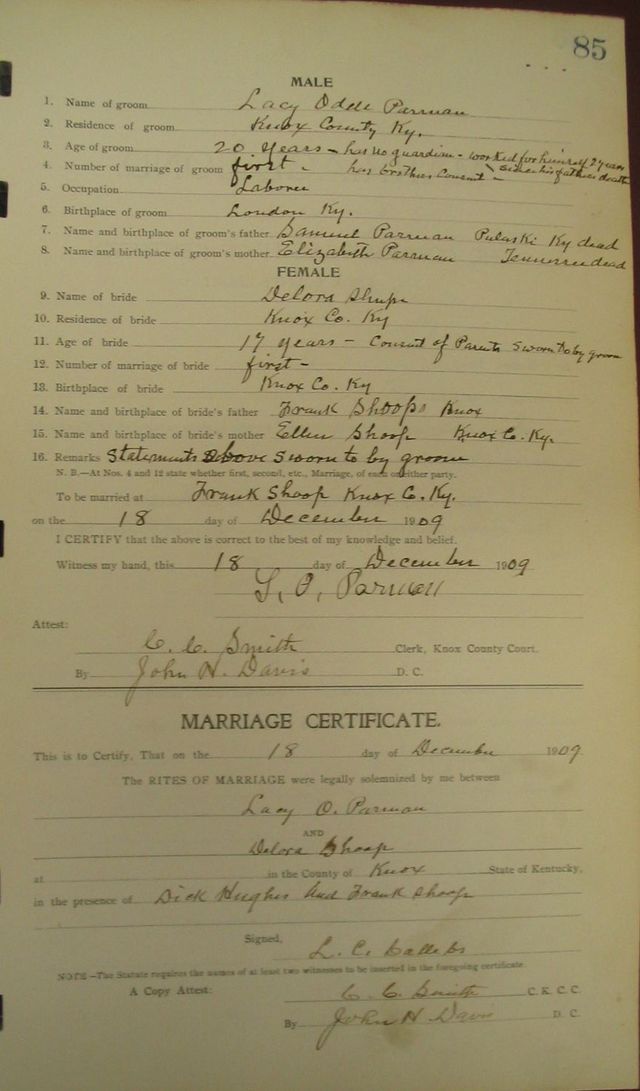 85
MALE
1. Name of groom Lacy Odell Parman
2. Residence of groom Knox County Ky.
3. Age of groom 20 years - has no guardian - worked for himself 2 years
4. Number of marriage of groom first - has brothers consent - since his fathers death
5. Occupation Laborer
6. Birthplace of groom London Ky.
7. Name and birthplace of groom's father Samuel Parman Pulaski Ky dead
8. Name and birthplace of groom's mother Elizabeth Parman Tennessee dead
FEMALE
9. Name of bride Delora
10. Residence of bride Knox Co. Ky
11. Age of bride 17 years - Consent of Parents sworn to by groom
12. Number of marriage of bride first -
13. Birthplace of bride Knox Co. Ky
14. Name and birthplace of bride's father Frank Shoops Knox
15. Name and birthplace of bride's mother Ellen Shoop Knox Co. Ky.
16. Remarks Statements above sworn to by groom
N. B.—At Nos. 4 and 12 state whether first, second, etc., Marriage, of each or either party.
To be married at Frank Shoop Knox Co. Ky.
on the 18 day of December 1909
I CERTIFY that the above is correct to the best of my knowledge and belief.
Witness my hand, this 18 day of December 1909
L. O. Parman
Attest:
C. C. Smith Clerk, Knox County Court.
By John H. Davis D. C.
MARRIAGE CERTIFICATE.
This is to Certify, That on the 18 day of December 1909
The RITES OF MARRIAGE were legally solemnized by me between
Lacy O. Parman
AND
Delora Shoop
at in the County of Knox State of Kentucky,
in the presence of Dick Hughes and Frank Shoop
Signed, L. C.
NOTE—The Statute requires the names of at least two witnesses to be inserted in the foregoing certificate.
A Copy Attest: C. C. Smith C. K. C. C.
By John H Davis D. C.